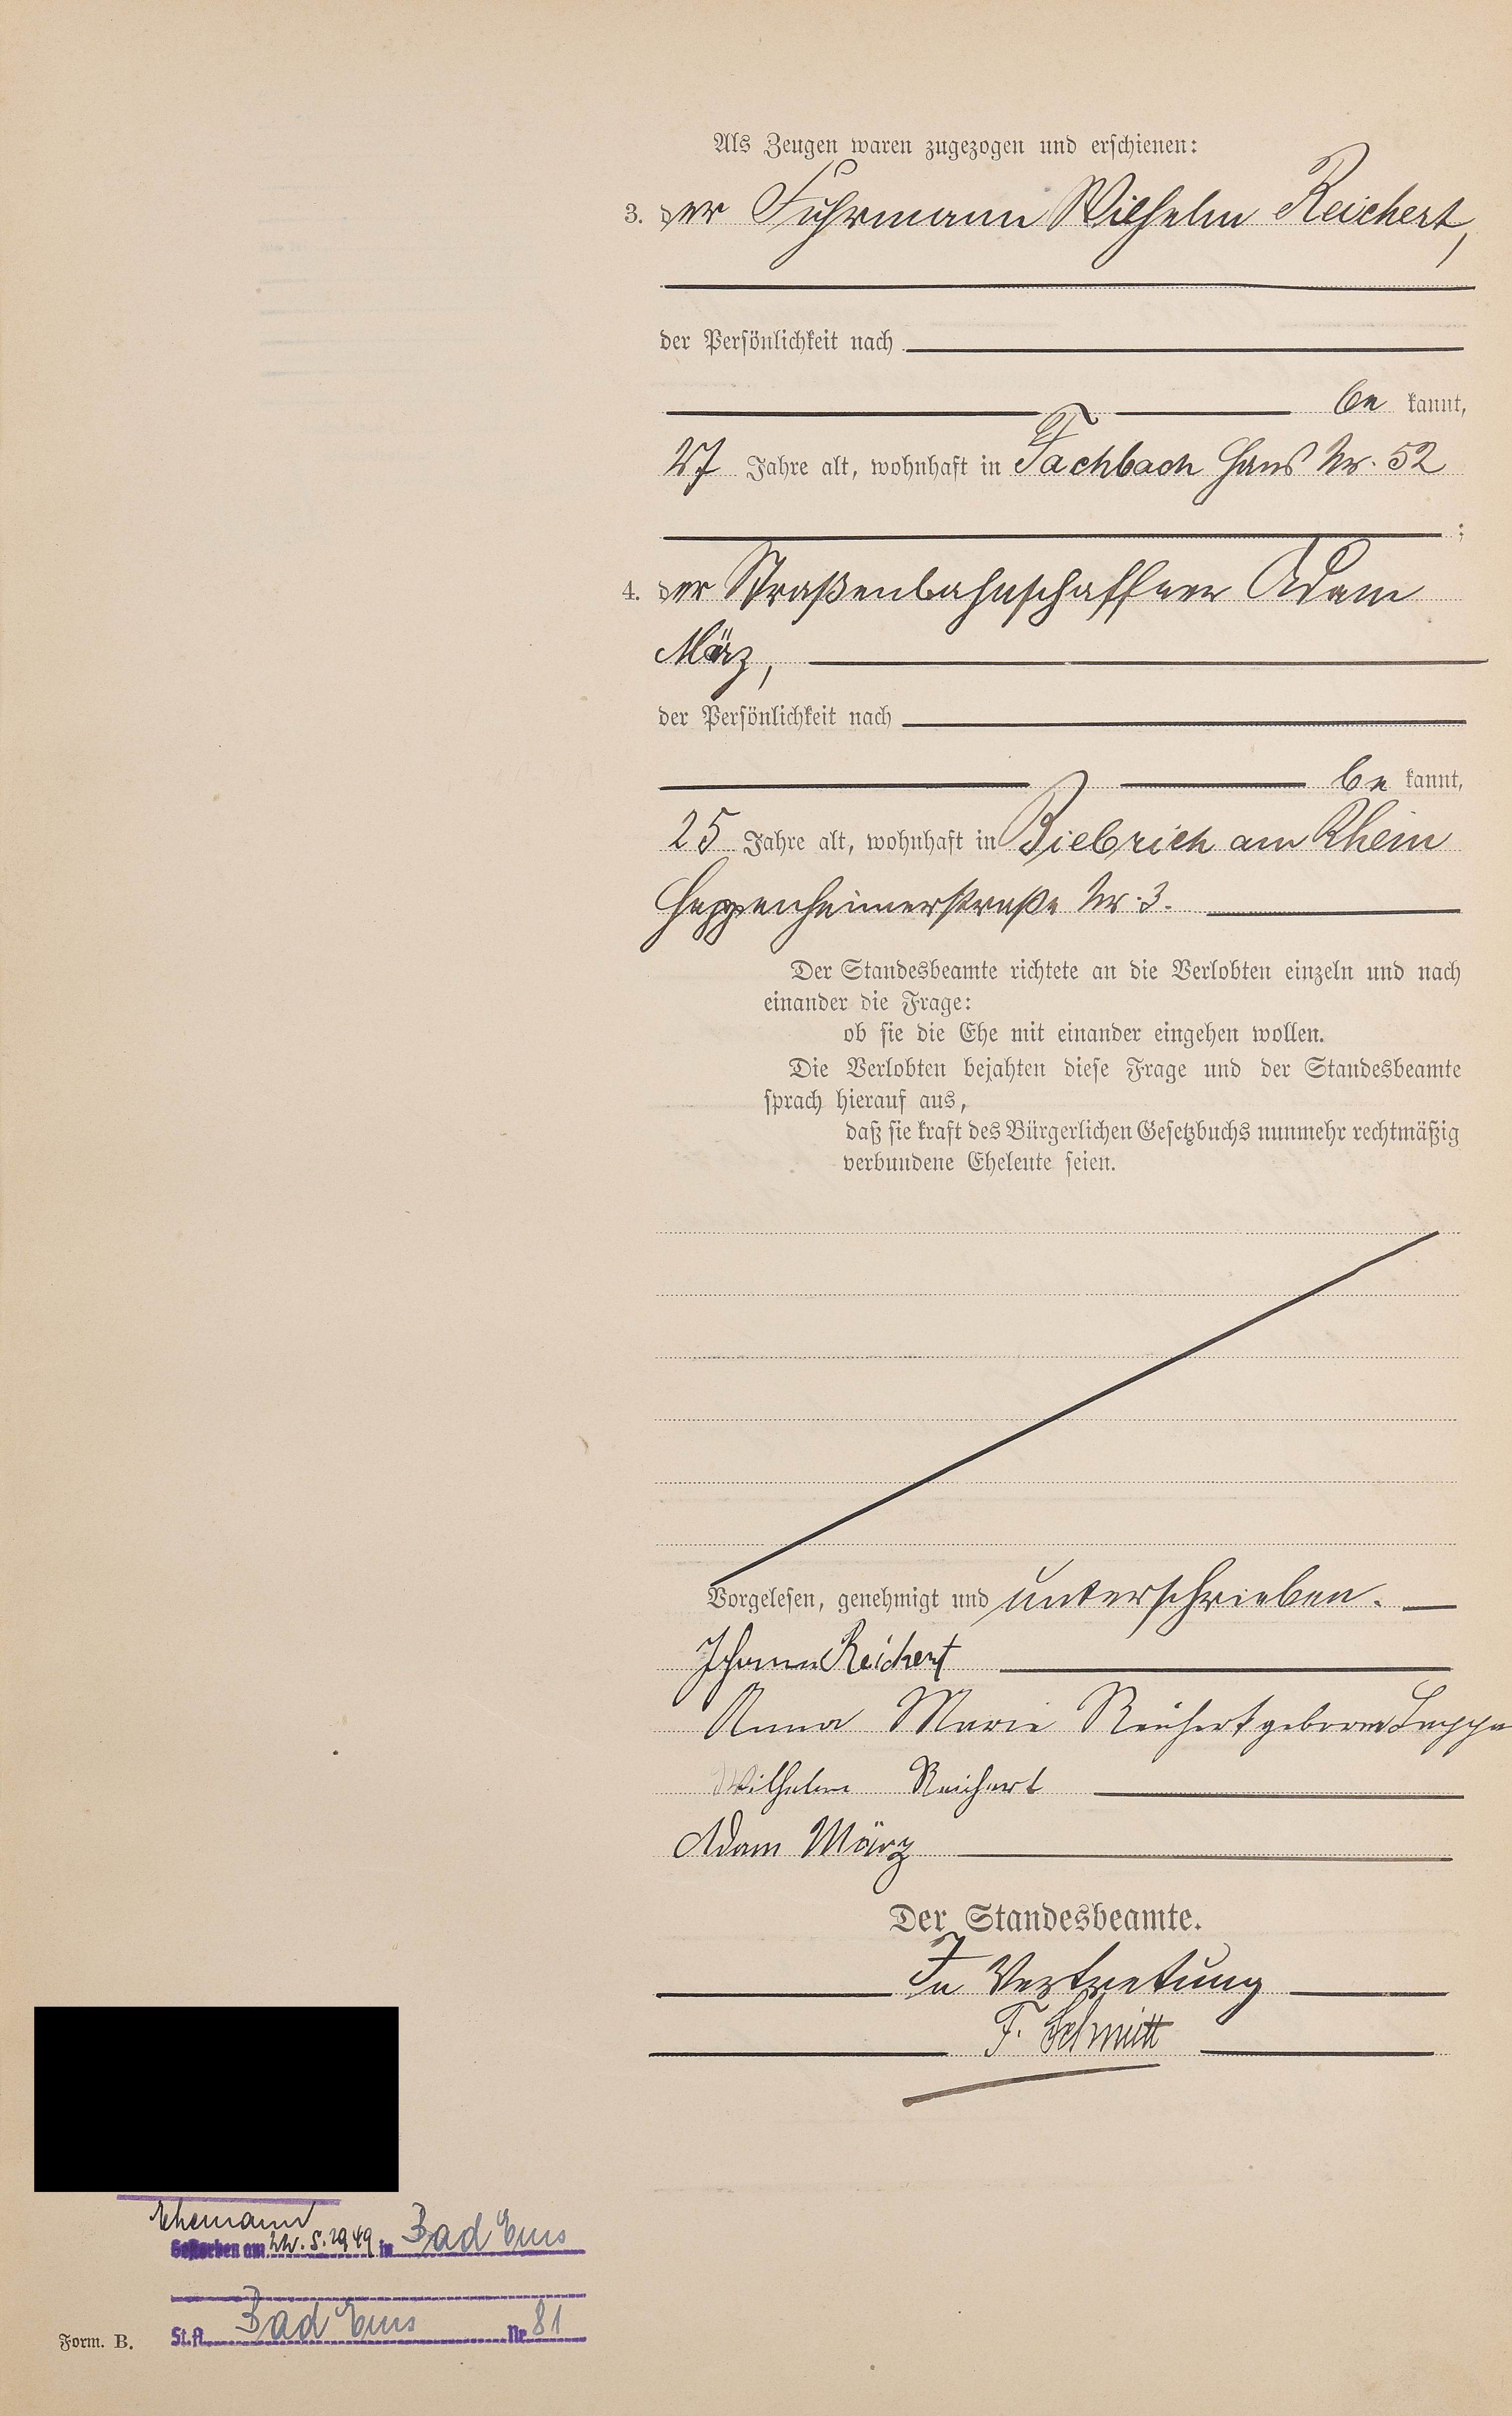 Als Zeugen waren zugezogen und erschienen:
3. der Fuhrmann Wilhelm Reichert,
der Persönlichkeit nach
be kannt,
27 Jahre alt, wohnhaft in Fachbach Haus Nr. 52
;
4. der Straßenbahnschaffner Adam
März,
der Persönlichkeit nach
be kannt,
25 Jahre alt, wohnhaft in Biebrich am Rhein
Heppenheimerstraße Nr. 3.
Der Standesbeamte richtete an die Verlobten einzeln und nach
einander die Frage:
ob sie die Ehe mit einander eingehen wollen.
Die Verlobten bejahten diese Frage und der Standesbeamte
sprach hierauf aus,
daß sie kraft des Bürgerlichen Gesetzbuchs nunmehr rechtmäßig
verbundene Eheleute seien.
Vorgelesen, genehmigt und unterschrieben.
Johann Reichert
Anna Marie Reichert geboren
Wilhelm Reichert
Adam März
Der Standesbeamte.
In Vertretung
F. Schmitt
Ehemann
Gestorben am 22.5.1949 in Bad Ems
St.A. Bad Ems Nr. 81
Form. B.